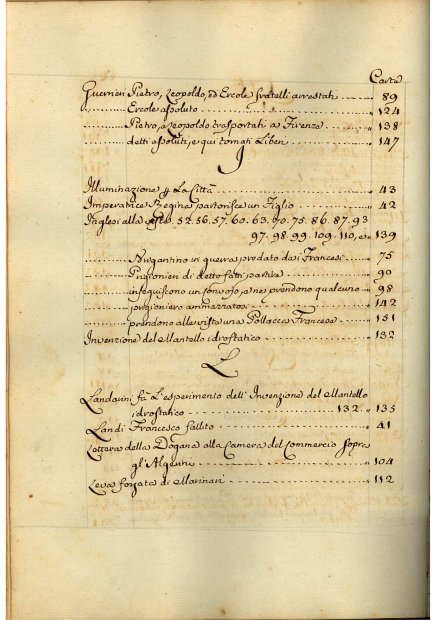 Carte
Guerrieri Pietro, Leopoldo, ed Ercole fratelli arrestati 89
Ercole assoluto 124
Pietro, e Leopoldo trasportati a Firenze 138
detti assoluti, e qui tornati Liberi 147
I
Illuminazione La Città 43
Imperatrice Regina partorisce un Figlio 42
Inglesi alla 52. 56. 57. 60. 63. 70. 75. 86. 87. 93
97. 98. 99. 109. 110, e 139
Brigantino in guerra predato dai Francesi 75
Prigionieri di detto fatti partire 90
inseguiscono un e ne prendono qualcuno 98
prigioniero ammazzato 142
prendono alla vista una Pollacca Francese 151
Invenzione del Mantello idrostatico 132
L
Landrini fà L'esperimento dell'Invenzione del Mantello
idrostatico 132. 135
Landi Francesco fallito 41
Lettera della Dogana alla Camera del Commercio sopra
gl'Algerini 104
Leva forzata di Marinari 112